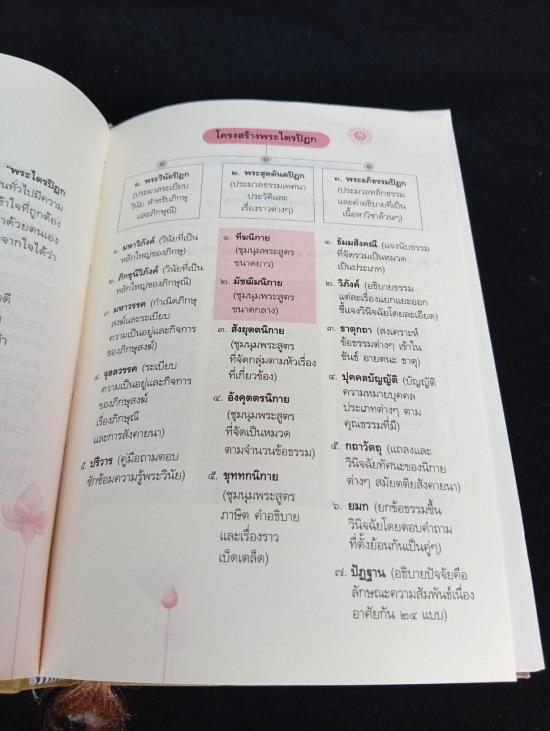 "พระไตรปิฎก
โครงสร้างพระไตรปิฎก
๑. พระวินัยปิฎก
(ประมวลระเบียบ
วินัย สำหรับภิกษุ
และภิกษุณี)
๑. มหาวิภังค์ (วินัยที่เป็น
หลักใหญ่ของภิกษุ)
๒. ภิกขุนีวิภังค์ (วินัยที่เป็น
หลักใหญ่ของภิกษุณี)
๓. มหาวรรค (กำเนิดภิกษุ
สงฆ์และระเบียบ
ความเป็นอยู่และกิจการ
ของภิกษุสงฆ์)
๔. จุลลวรรค (ระเบียบ
ความเป็นอยู่และกิจการ
ของภิกษุสงฆ์
เรื่องภิกษุณี
และการสังคายนา)
๕. ปริวาร (คู่มือถามตอบ
ซักซ้อมความรู้พระวินัย)
๒. พระสุตตันตปิฎก
(ประมวลธรรมเทศนา
ประวัติและ
เรื่องราวต่างๆ)
๑. ทีฆนิกาย
(ชุมนุมพระสูตร
ขนาดยาว)
๒. มัชฌิมนิกาย
(ชุมนุมพระสูตร
ขนาดกลาง)
๓. สังยุตตนิกาย
(ชุมนุมพระสูตร
ที่จัดกลุ่มตามหัวเรื่อง
ที่เกี่ยวข้อง)
๔. อังคุตตรนิกาย
(ชุมนุมพระสูตร
ที่จัดเป็นหมวด
ตามจำนวนข้อธรรม)
๕. ขุททกนิกาย
(ชุมนุมพระสูตร
ภาษิต คำอธิบาย
และเรื่องราว
เบ็ดเตล็ด)
๓. พระอภิธรรมปิฎก
(ประมวลหลักธรรม
และคำอธิบายที่เป็น
เนื้อหาวิชาล้วนๆ)
๑. ธัมมสังคณี (แจงนับธรรม
ที่จัดรวมเป็นหมวด
เป็นประเภท)
๒. วิภังค์ (อธิบายธรรม
แต่ละเรื่องแยกแยะออก
ชี้แจงวินิจฉัยโดยละเอียด)
๓. ธาตุกถา (สงเคราะห์
ข้อธรรมต่างๆ เข้าใน
ขันธ์ อายตนะ ธาตุ)
๔. ปุคคลบัญญัติ (บัญญัติ
ความหมายบุคคล
ประเภทต่างๆ ตาม
คุณธรรมที่มี)
๕. กถาวัตถุ (แถลงและ
วินิจฉัยทัศนะของนิกาย
ต่างๆ สมัยตติยสังคายนา)
๖. ยมก (ยกข้อธรรมขึ้น
วินิจฉัยโดยตอบคำถาม
ที่ตั้งย้อนกันเป็นคู่ๆ)
๗. ปัฏฐาน (อธิบายปัจจัยคือ
ลักษณะความสัมพันธ์เนื่อง
อาศัยกัน ๒๔ แบบ)